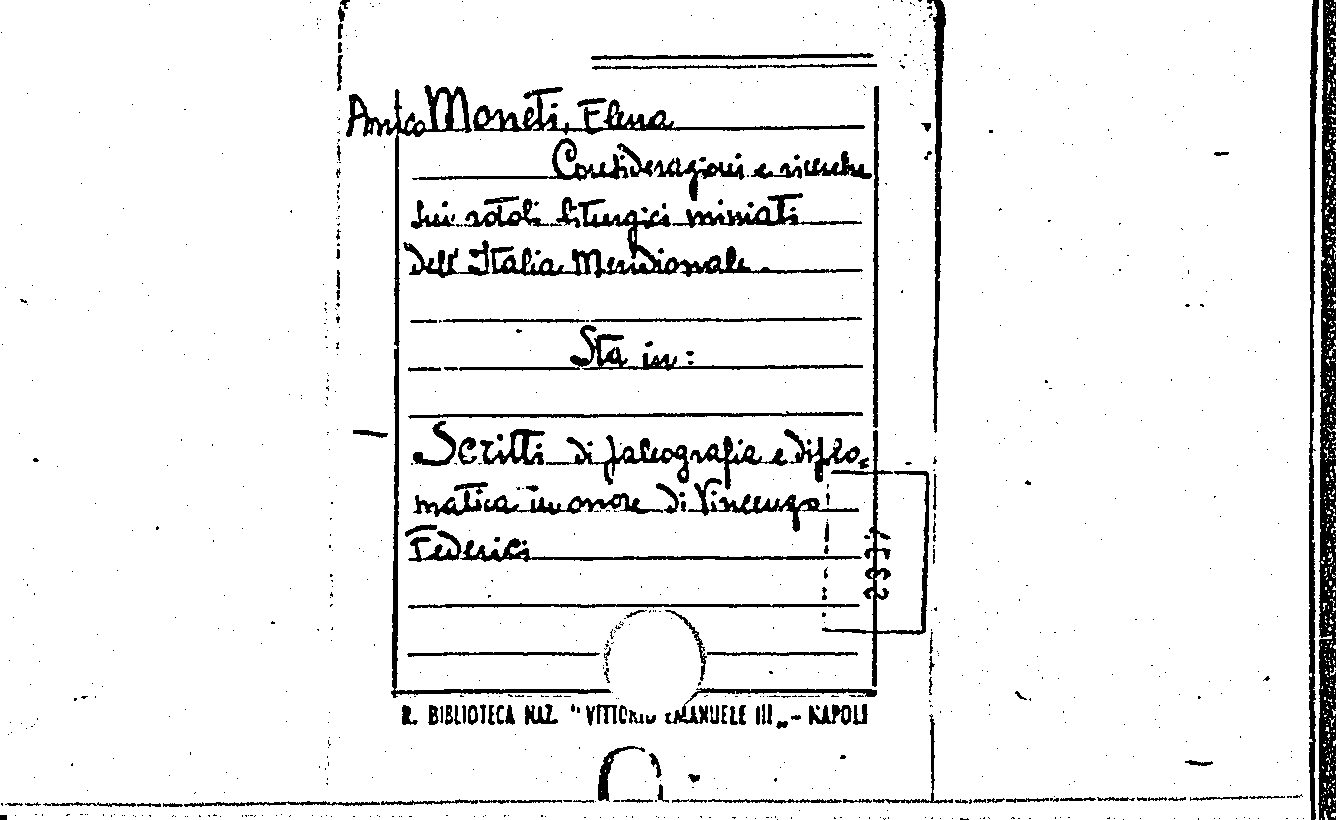 Amico Moneti, Elena
Considerazioni e ricerche
sui rotoli liturgici miniati
dell'Italia Meridionale.
Sta in:
Scritti di paleografia e diplo=
matica in onore di Vincenzo
Federici
2337
R. BIBLIOTECA NAZ. "VITTORIO EMANUELE III„ - NAPOLI